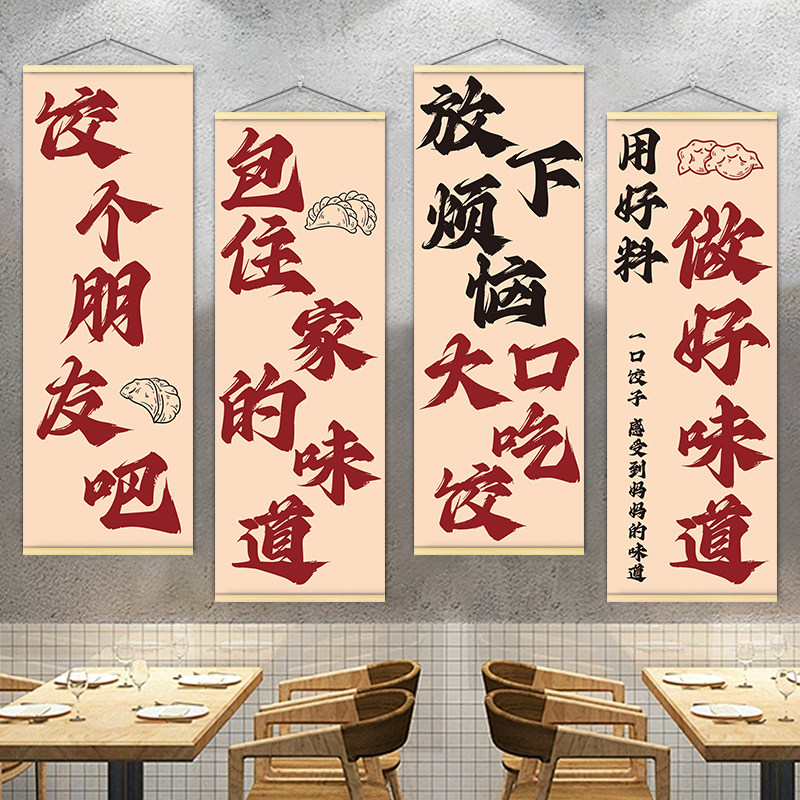 饺个朋友吧
包住家的味道
放下烦恼
大口吃饺
用好料
做好味道
一口饺子 感受到妈妈的味道